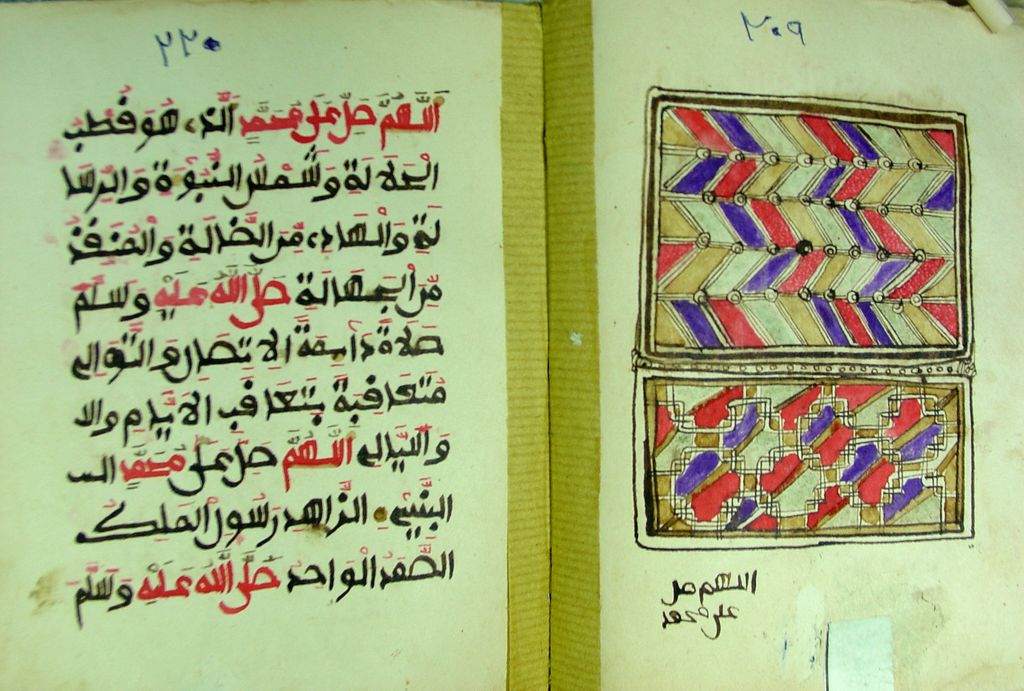 ٢٠٩
اللهم صل
٢٢٠
اَللَّهُمَّ صَلِّ عَلَى مُحَمَّدٍ الَّذِي هُوَ قُطْبُ
الْجَلَالَةِ وَشَمْسُ النُّبُوَّةِ وَالرِّسَا
لَةِ وَالْهَادِي مِنَ الضَّلَالَةِ وَالْمُنْقِذُ
مِنَ الْجَهَالَةِ صَلَّى اللَّهُ عَلَيْهِ وَسَلَّمَ
صَلَاةً دَائِمَةَ الاِتِّصَالِ وَالتَّوَالِي
مُتَعَاقِبَةً بِتَعَاقُبِ الاَيَّامِ والا
وَاللَّيَالِي اَللَّهُمَّ صَلِّ عَلَى مُحَمَّدٍ
النَّبِيِّ الزَّاهِدِ رَسُولِ الْمَلِكِ
الصَّمَدِ الْوَاحِدِ صَلَّى اللَّهُ عَلَيْهِ وَسَلَّمَ